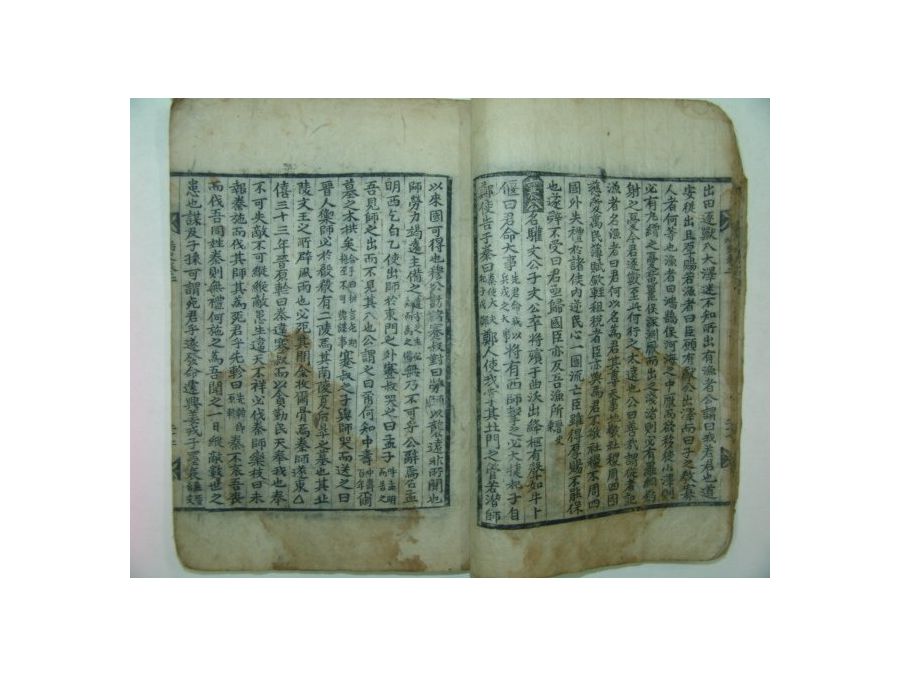 出田逐獸入大澤迷不知所出有漁者公謂曰我若君也道
安從出且厚賜若漁者曰臣願有獻公出澤而曰子之敎寡
人者何等也漁者曰鴻鵠保河海之中厭而欲移徙小澤則
必有九繒之憂黿鼉保深淵厭而出之淺渚則必有羅網釣
射之憂今君逐獸至此何行之太遠也公曰善哉謂從者記
漁者名漁者曰君何以名爲君其尊天事地敬社稷固四國
慈愛萬民薄賦斂輕租稅者臣亦與焉君不敬社稷不固四
國外失禮於諸侯內逆民心一國流亡臣雖得厚賜不能保
也遂辭不受曰君亟歸國臣亦反吾漁所
襄公名驩文公子文公卒將殯于曲沃出絳柩有聲如牛卜
偃曰君命大事將有西師擊之必大捷杞子自
鄭使告于秦曰鄭人使我掌其北門之管若潛師
以來國可得也穆公訪諸蹇叔對曰勞師以襲遠非所聞也
師勞力竭遠主備之無乃不可乎公辭焉召孟
明西乞白乙使出師於東門之外蹇叔哭之曰孟子
吾見師之出而不見其入也公謂之曰爾何知中壽爾
墓之木拱矣蹇叔之子與師哭而送之曰
晉人禦師必於殽殽有二陵焉其南陵夏后皐之墓也其北
陵文王之所辟風雨也必死其間余收爾骨焉秦師遂東
僖三十三年晉原軫曰秦違蹇叔而以貪勤民天奉我也奉
不可失敵不可縱縱敵患生違天不祥必伐秦師欒枝曰未
報秦施而伐其師其爲死君乎先軫曰秦不哀吾喪
而伐吾同姓秦則無禮何施之爲吾聞之一日縱敵數世之
患也謀及子孫可謂死君乎遂發命遽興姜戎子墨衰絰